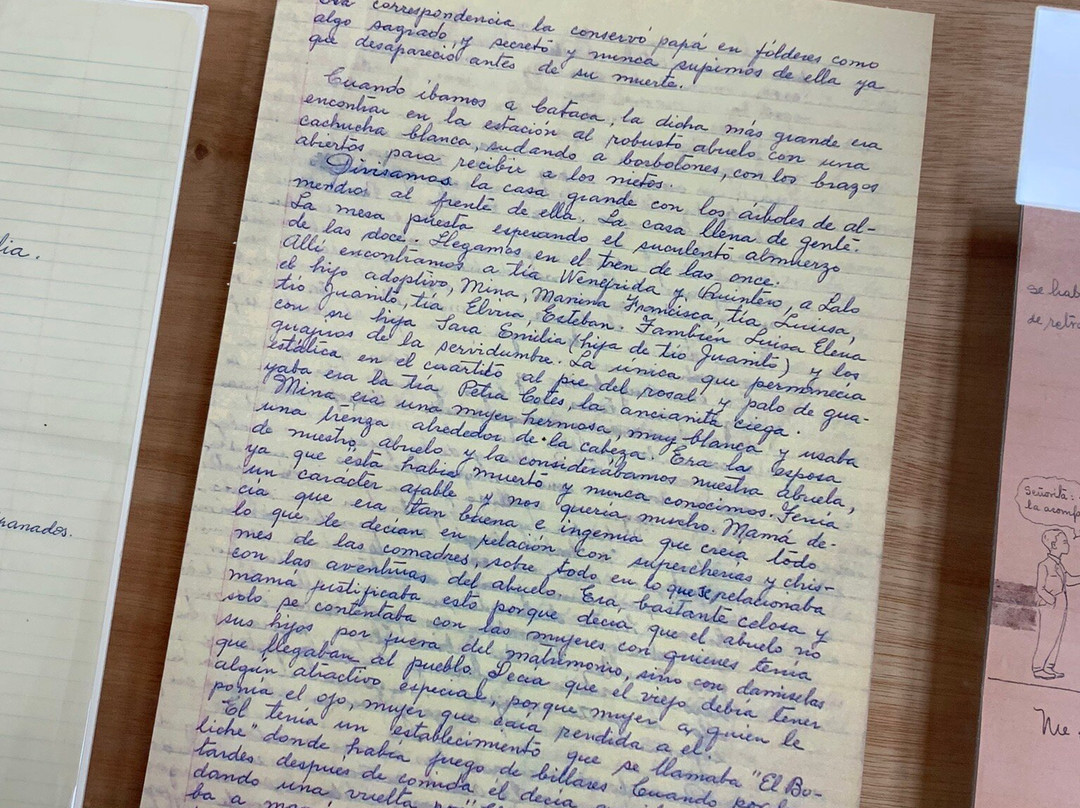 correspondencia la conservó papá en fólderes como
algo sagrado y secreto y nunca supimos de ella ya
que desapareció antes de su muerte.
Cuando íbamos a Cataca, la dicha más grande era
encontrar en la estación al robusto abuelo con una
cachucha blanca, sudando a borbotones, con los brazos
abiertos para recibir a los nietos.
Divisamos la casa grande con los árboles de al-
mendro al frente de ella. La casa llena de gente.
La mesa puesta esperando el suculento almuerzo
de las doce. Llegamos en el tren de las once.
Allí encontramos a tía Wenefrida y Quintero, a Lalo
el hijo adoptivo, Mina, Mamina Francisca, tía Luiusa,
tío Juanito, tía Elvira, Esteban. También Luisa Elena
con su hija Sara Emilia (hija de tío Juanito) y los
guajiros de la servidumbre. La única que permanecía
estática en el cuartito al pie del rosal y palo de gua-
yaba era la tía Petra Cotes, la ancianita ciega.
Mina era una mujer hermosa, muy blanca y usaba
una trenza alrededor de la cabeza. Era la esposa
de nuestro abuelo y la considerábamos nuestra abuela,
ya que ésta había muerto y nunca conocimos. Tenía
un carácter afable y nos quería mucho. Mamá de-
cía que era tan buena e ingenua que creía todo
lo que le decían en relación con supercherías y chis-
mes de las comadres, sobre todo en lo que se relacionaba
con las aventuras del abuelo. Era bastante celosa y
mamá justificaba esto porque decía que el abuelo no
solo se contentaba con las mujeres con quienes tenía
sus hijos por fuera del matrimonio, sino con damiselas
que llegaban al pueblo. Decía que el viejo debía tener
algún atractivo especial, porque mujer a quien le
ponía el ojo, mujer que caía rendida a él.
El tenía un establecimiento que se llamaba "El Bo-
liche" donde había juego de billares. Cuando por
tardes después de comida el decía
dando una vuelta
ba a
lia.
ranados.
se hab
de retra
Señorita:
la acomp
Me